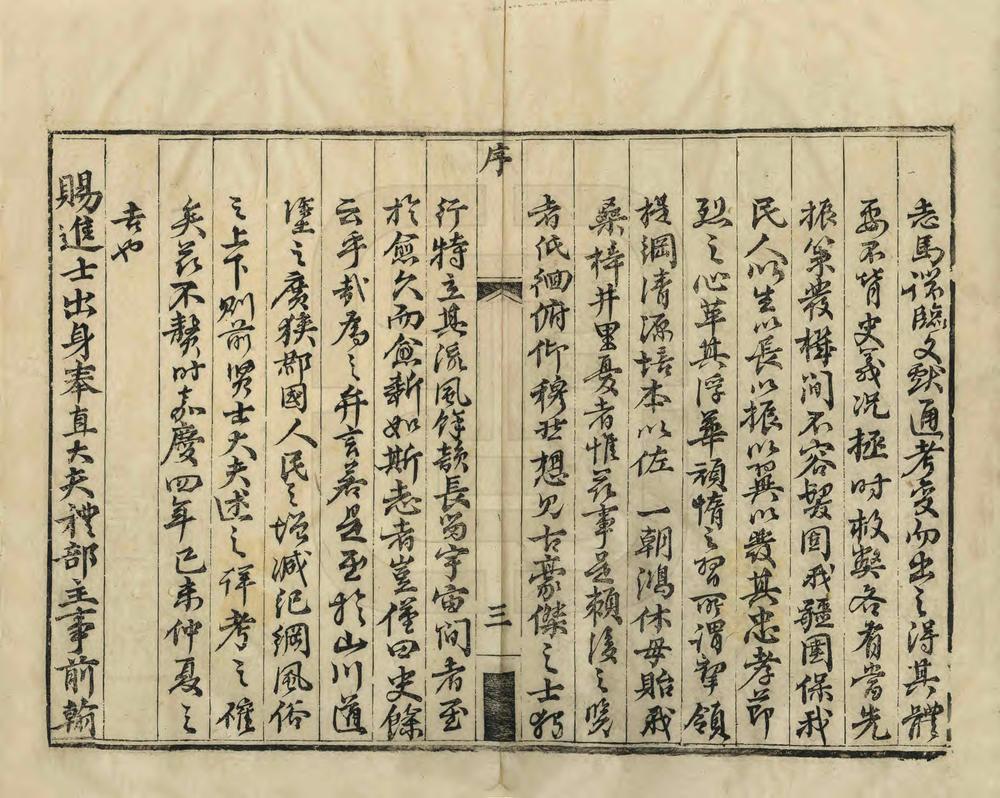 志馬端臨文獻通考變而出之得其體
要不背史義况拯时救獘各有當先
振策發機間不容髮固我疆圉保我
民人以生以長以振以翼以發其忠孝節
烈之心革其浮華頑惰之習所謂挈領
提綱清源培本以佐 一朝鴻休毋貽我
桑梓井里憂者惟茲事是賴後之覽
者低徊俯仰穆然想見古豪傑之士獨
序
三
行特立其流風餘韻長留宇宙間者至
於愈久而愈新如斯志者豈僅曰史餘
云乎哉爲之弁言若是至於山川道
里之廣狹郡國人民之增减紀綱風俗
之上下則前賢士大夫述之詳考之確
矣茲不贅时嘉慶四年己未仲夏之
吉也
賜進士出身奉直大夫禮部主事前翰